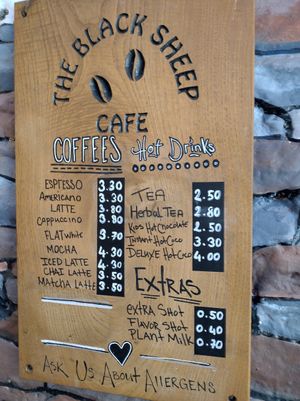 THE BLACK SHEEP
CAFE
COFFEES
ESPRESSO 3.30
Americano 3.30
LATTE 3.80
Cappuccino 3.80
FLAT White 3.70
MOCHA 4.30
ICED LATTE 4.30
CHAI LATTE 3.50
Matcha Latte 3.50
Hot Drinks
TEA 2.50
Herbal TEA 2.80
Kids Hot Chocolate 2.50
Instant Hot Coco 3.30
DELUXE Hot Coco 4.00
Extras
extra Shot 0.50
FLAVOR SHOT 0.40
PLANT Milk 0.70
Ask Us About Allergens